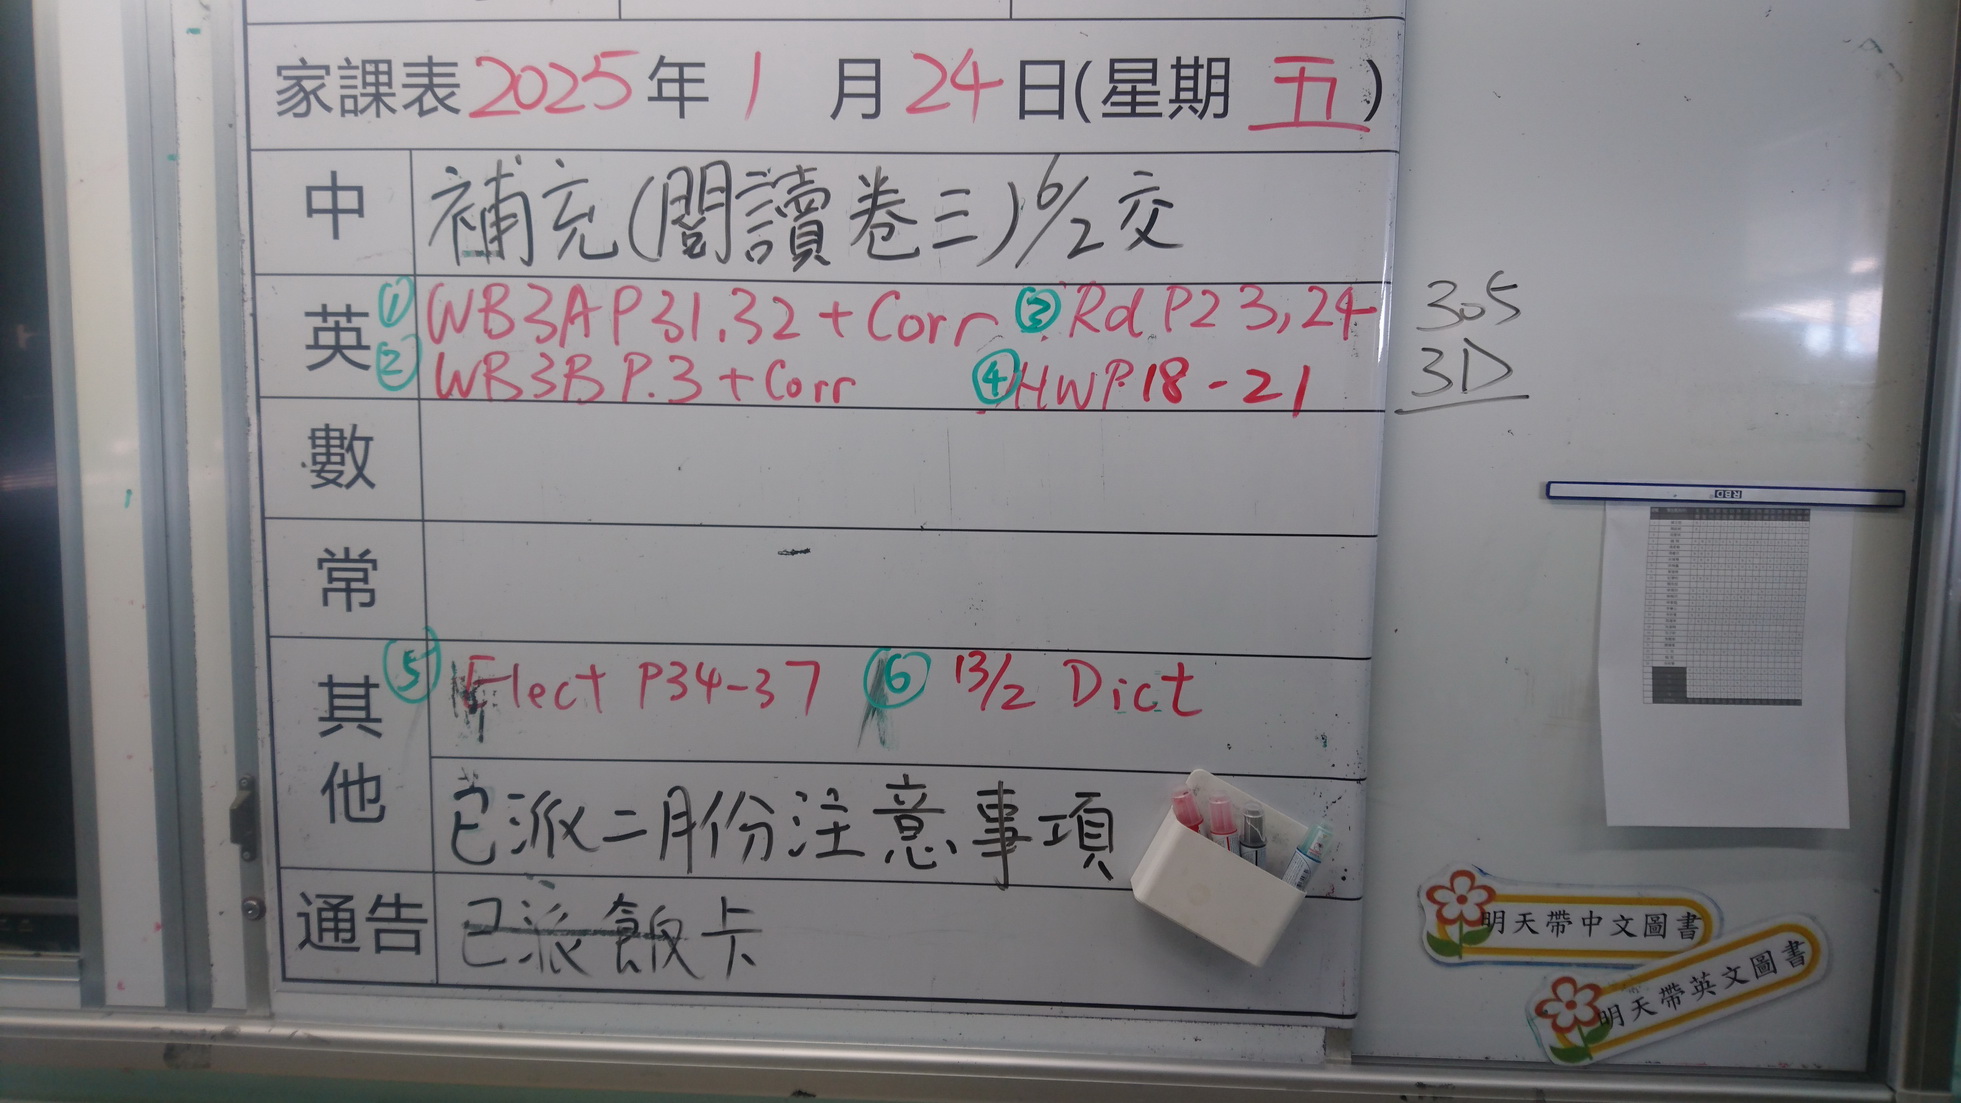 家課表 2025年 1 月 24 日(星期 五)
中 補充(閱讀卷三) 6/2 交
英 ① WB3A P31.32 + Corr ③ Rd P23,24
② WB3B P.3 + Corr ④ HWP.18-21
數
常
其他 ⑤ Elect P34-37 ⑥ 13/2 Dict
已派二月份注意事項
通告 已派飯卡
305
3D
RBD
明天帶中文圖書
明天帶英文圖書